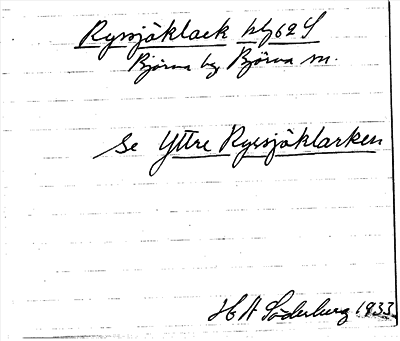 Ryssjöklack bg62S
Björna by Björna sn.
Se Yttre Ryssjöklacken
H A Söderberg 1933.